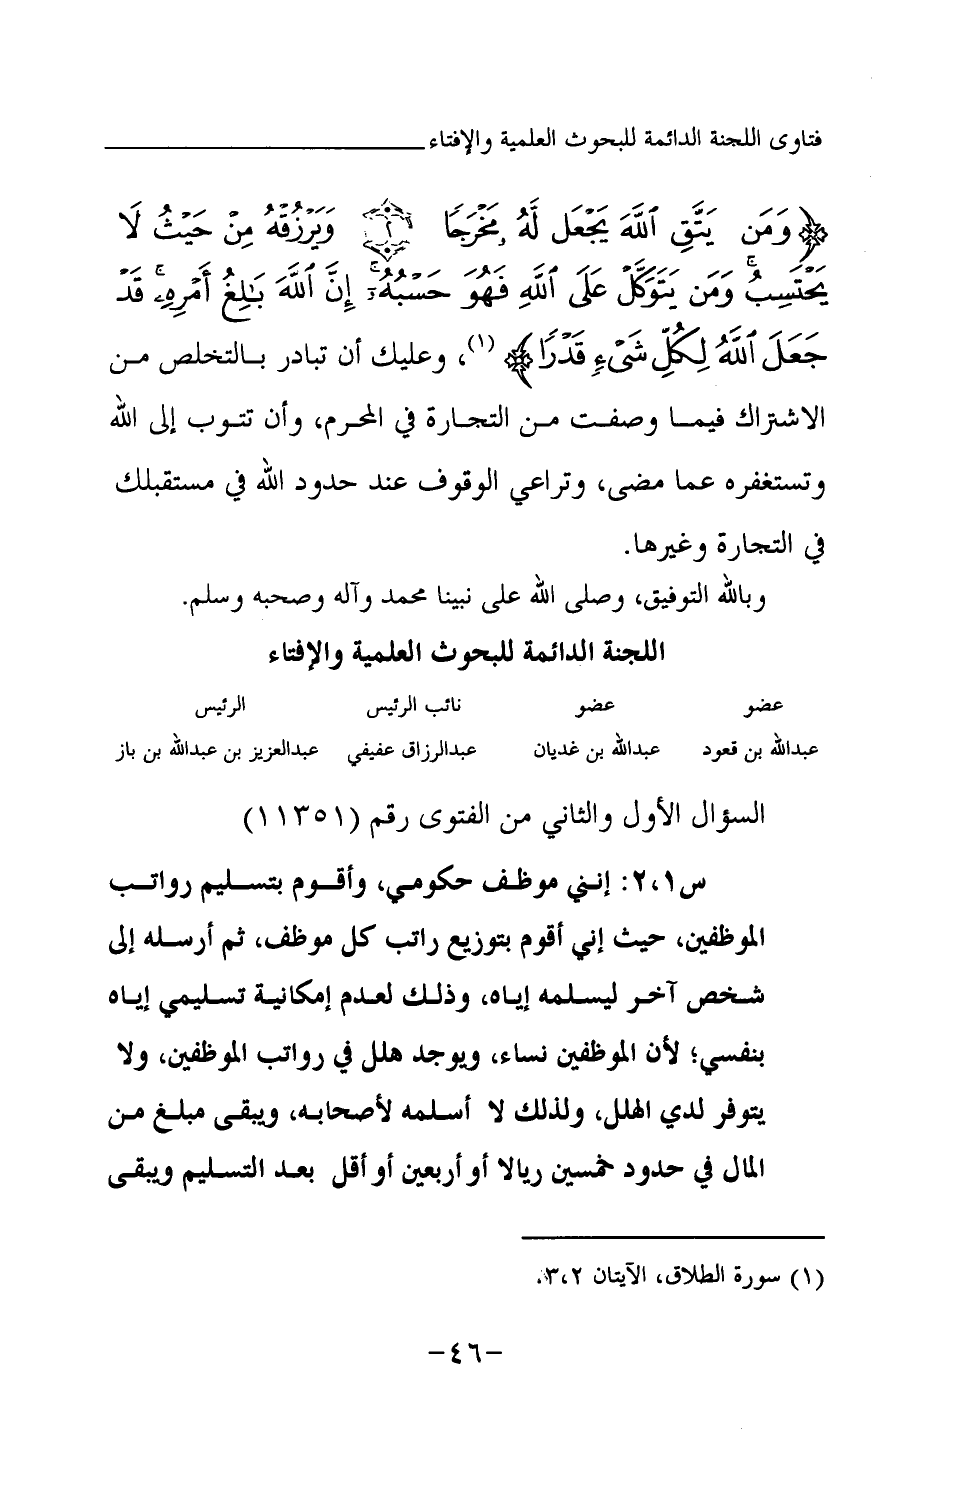 فتاوى اللجنة الدائمة للبحوث العلمية والإفتاء
﴿وَمَن يَتَّقِ ٱللَّهَ يَجْعَل لَّهُۥ مَخْرَجًا ٢ وَيَرْزُقْهُ مِنْ حَيْثُ لَا
يَحْتَسِبُ ۚ وَمَن يَتَوَكَّلْ عَلَى ٱللَّهِ فَهُوَ حَسْبُهُۥٓ ۚ إِنَّ ٱللَّهَ بَٰلِغُ أَمْرِهِۦ ۚ قَدْ
جَعَلَ ٱللَّهُ لِكُلِّ شَىْءٍ قَدْرًا﴾ (١)، وعليك أن تبادر بالتخلص من
الاشتراك فيما وصفت من التجارة في المحرم، وأن تتوب إلى الله
وتستغفره عما مضى، وتراعي الوقوف عند حدود الله في مستقبلك
في التجارة وغيرها.
وبالله التوفيق، وصلى الله على نبينا محمد وآله وصحبه وسلم.
اللجنة الدائمة للبحوث العلمية والإفتاء
عضو عضو نائب الرئيس الرئيس
عبدالله بن قعود عبدالله بن غديان عبدالرزاق عفيفي عبدالعزيز بن عبدالله بن باز
السؤال الأول والثاني من الفتوى رقم (١١٣٥١)
س٢،١: إنني موظف حكومي، وأقوم بتسليم رواتب
الموظفين، حيث إني أقوم بتوزيع راتب كل موظف، ثم أرسله إلى
شخص آخر ليسلمه إياه، وذلك لعدم إمكانية تسليمي إياه
بنفسي؛ لأن الموظفين نساء، ويوجد هلل في رواتب الموظفين، ولا
يتوفر لدي الهلل، ولذلك لا أسلمه لأصحابه، ويبقى مبلغ من
المال في حدود خمسين ريالا أو أربعين أو أقل بعد التسليم ويبقى
(١) سورة الطلاق، الآيتان ٣،٢.
-٤٦-